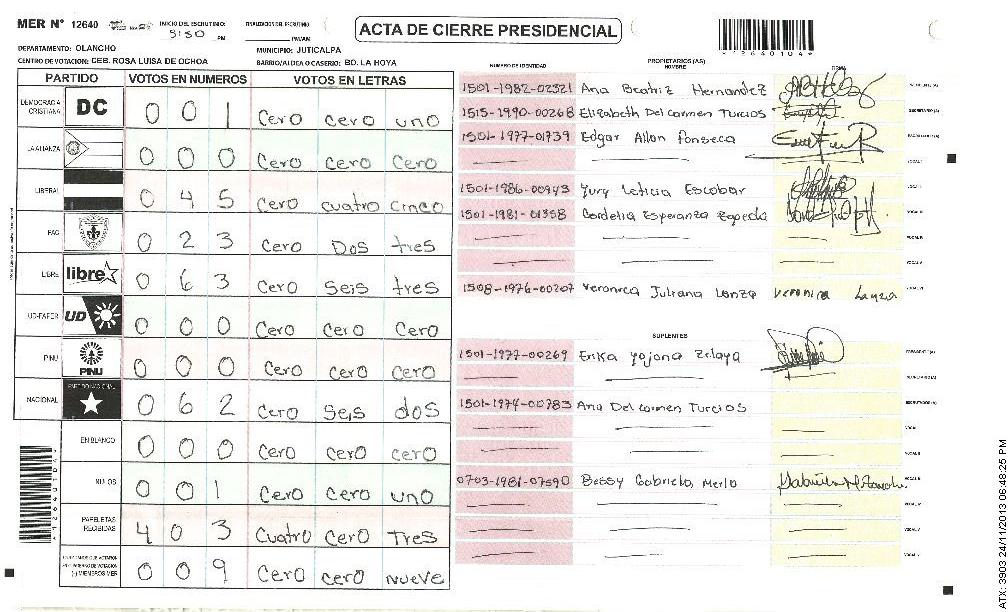 MER N° 12640
INICIO DEL ESCRUTINIO: 5:50 PM
FINALIZACION DEL ESCRUTINIO PM/AM
ACTA DE CIERRE PRESIDENCIAL
*12640104*
DEPARTAMENTO: OLANCHO
MUNICIPIO: JUTICALPA
CENTRO DE VOTACION: CEB. ROSA LUISA DE OCHOA
BARRIO/ALDEA O CASERIO: BO. LA HOYA
PARTIDO VOTOS EN NUMEROS VOTOS EN LETRAS
DEMOCRACIA CRISTIANA DC 0 0 1 Cero cero uno
LA ALIANZA 0 0 0 Cero Cero Cero
LIBERAL 0 4 5 Cero cuatro cinco
PAC 0 2 3 Cero Dos tres
LIBRE libre 0 6 3 Cero Seis tres
UD-FAPER UD 0 0 0 Cero Cero Cero
PINU PINU 0 0 0 Cero Cero Cero
NACIONAL PARTIDO NACIONAL 0 6 2 Cero Seis dos
EN BLANCO 0 0 0 Cero Cero Cero
NULOS 0 0 1 Cero Cero uno
PAPELETAS RECIBIDAS 4 0 3 Cuatro Cero Tres
MIEMBROS MER 0 0 9 Cero cero nueve
NUMERO DE IDENTIDAD
PROPIETARIOS (AS)
NOMBRE
FIRMA
1501-1982-02321 Ana Beatriz Hernandez
1515-1990-00268 Elizabeth Del carmen Turcios
1501-1977-01739 Edgar Allon Fonseca
1501-1986-00943 Yury Leticia Escobar
1501-1981-01358 Cordelia Esperanza Zepeda
1508-1976-00207 Veronica Juliana Lanza Veronica Lanza
SUPLENTES
1501-1977-00269 Erika Yojana Zelaya
1501-1974-00783 Ana Del carmen Turcios
0703-1981-07590 Bessy Gabriela Merlo
ATX: 3903 24/11/2013 06:48:25 PM